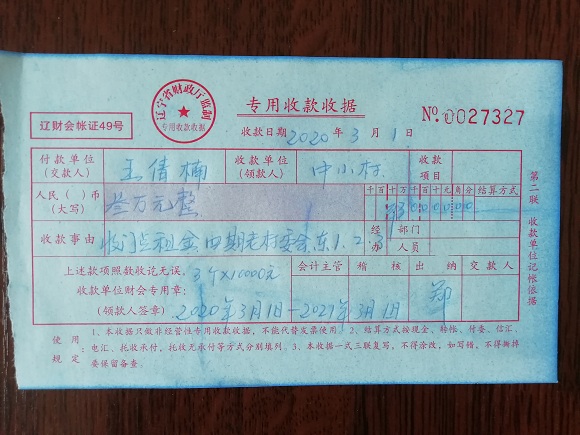 辽宁省财政厅监制
专用收款收据
辽财会帐证49号
专用收款收据
No. 0027327
收款日期 2020年3月1日
付款单位(交款人) 王倩楠 收款单位(领款人) 中小村 收款项目
人民( )币(大写) 叁万元整 千百十万千百十元角分 结算方式
¥3000000
收款事由 收门点租金四期老村委会东1.2.3 经办 部门人员
上述款项照数收讫无误。 3个×10000元 会计主管 稽核 出纳 交款人
收款单位财会专用章:
(领款人签章) 2020年3月1日-2021年3月1日 郑
使用规定 1、本收据只做非经营性专用收款收据,不能代替发票使用。2、结算方式按现金、转帐、付委、信汇、
电汇、托收承付,托收无承付等方式分别填列。3、本收据一式三联复写,不得涂改,如写错,不得撕掉
要保留备查。
第二联 收款单位记帐依据